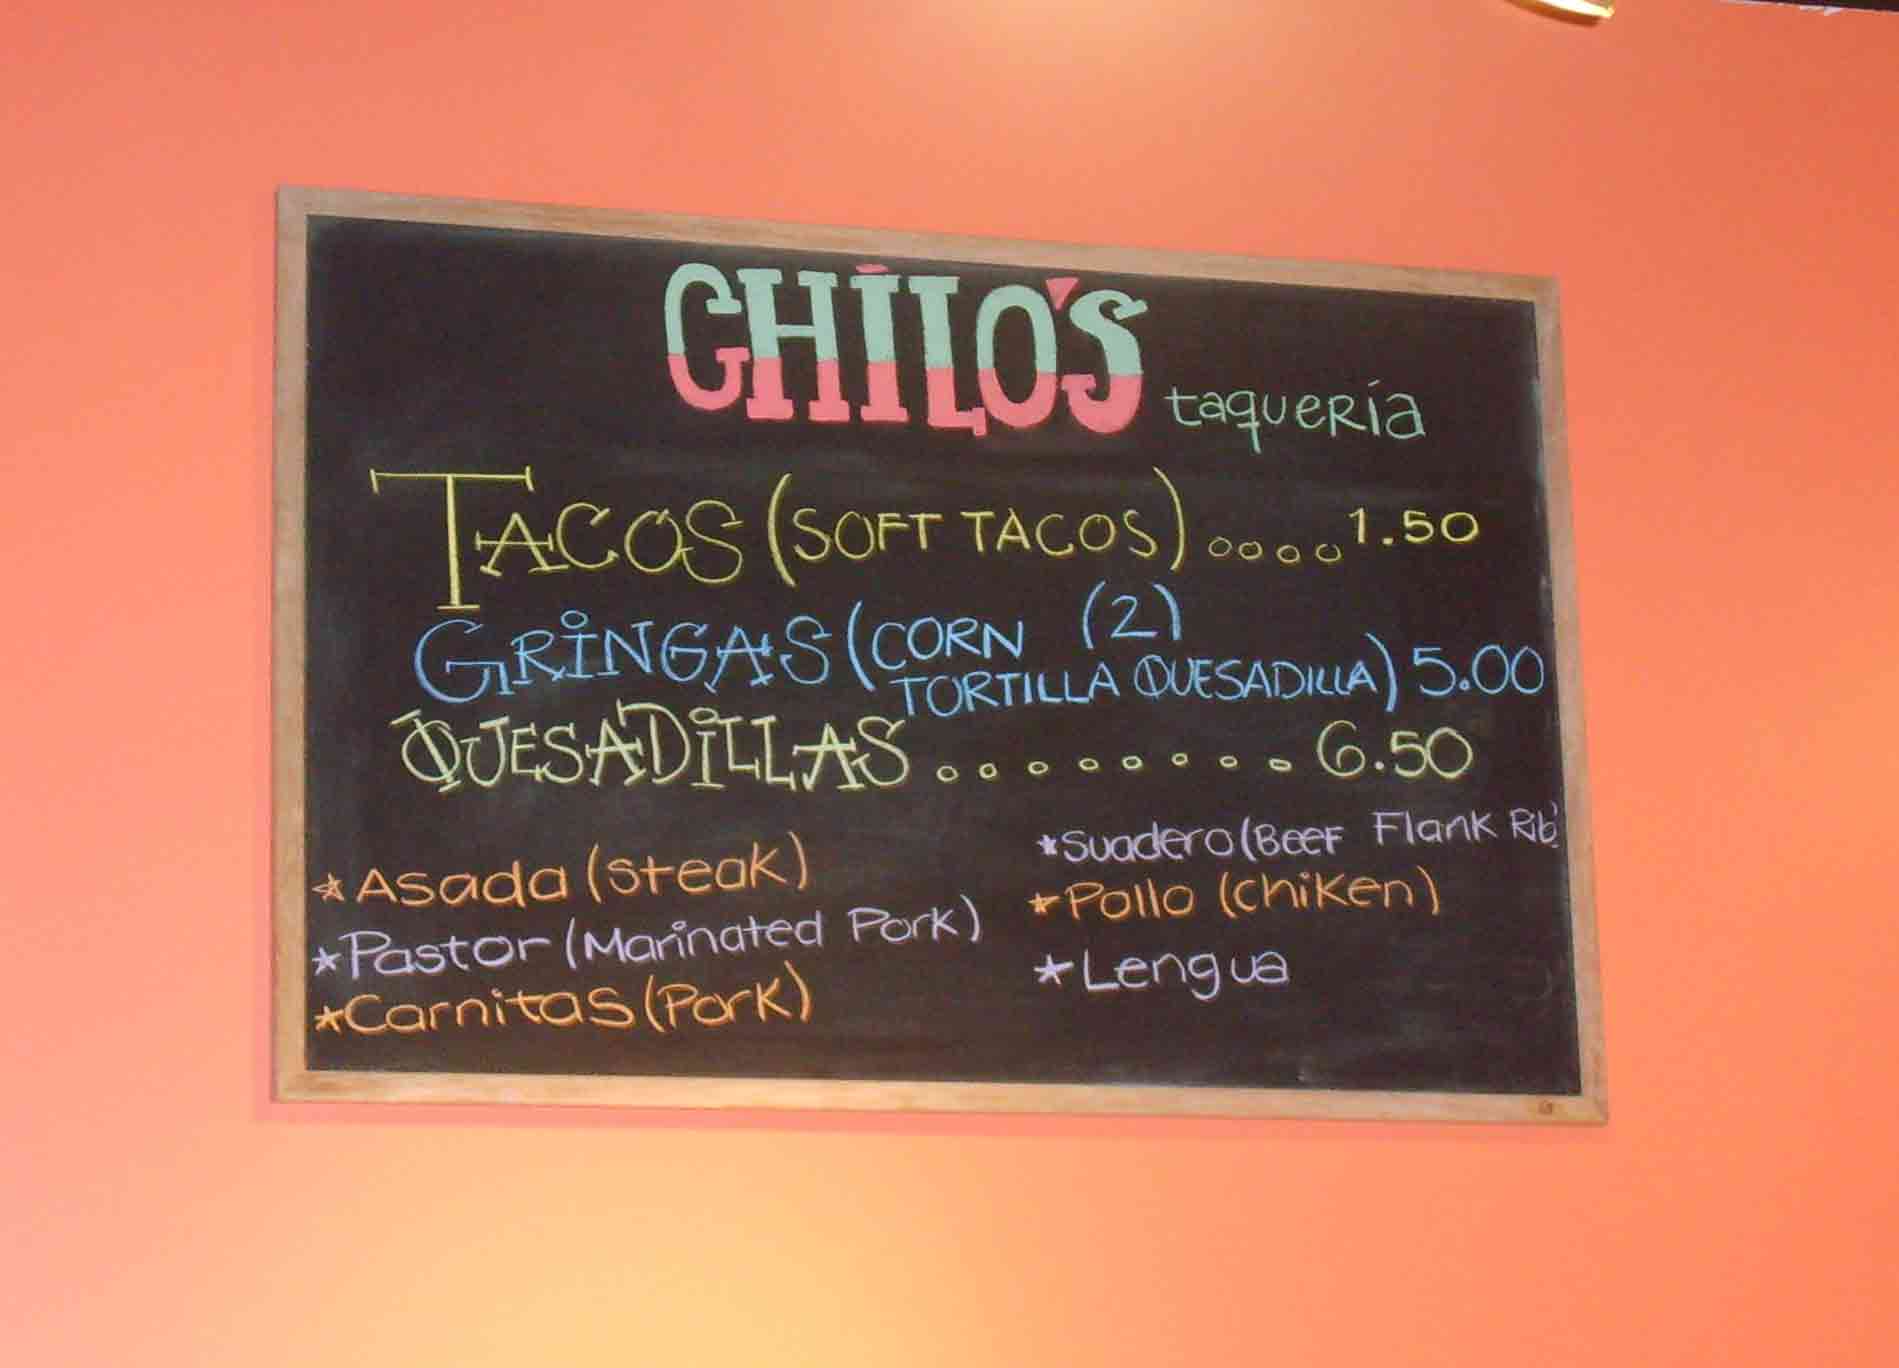 CHILO'S taquería
TACOS (SOFT TACOS) .... 1.50
GRINGAS (CORN (2)
TORTILLA QUESADILLA) 5.00
QUESADILLAS ........ 6.50
*Asada (steak)
*Pastor (Marinated Pork)
*Carnitas (Pork)
*Suadero (Beef Flank Rib)
*Pollo (chiken)
*Lengua